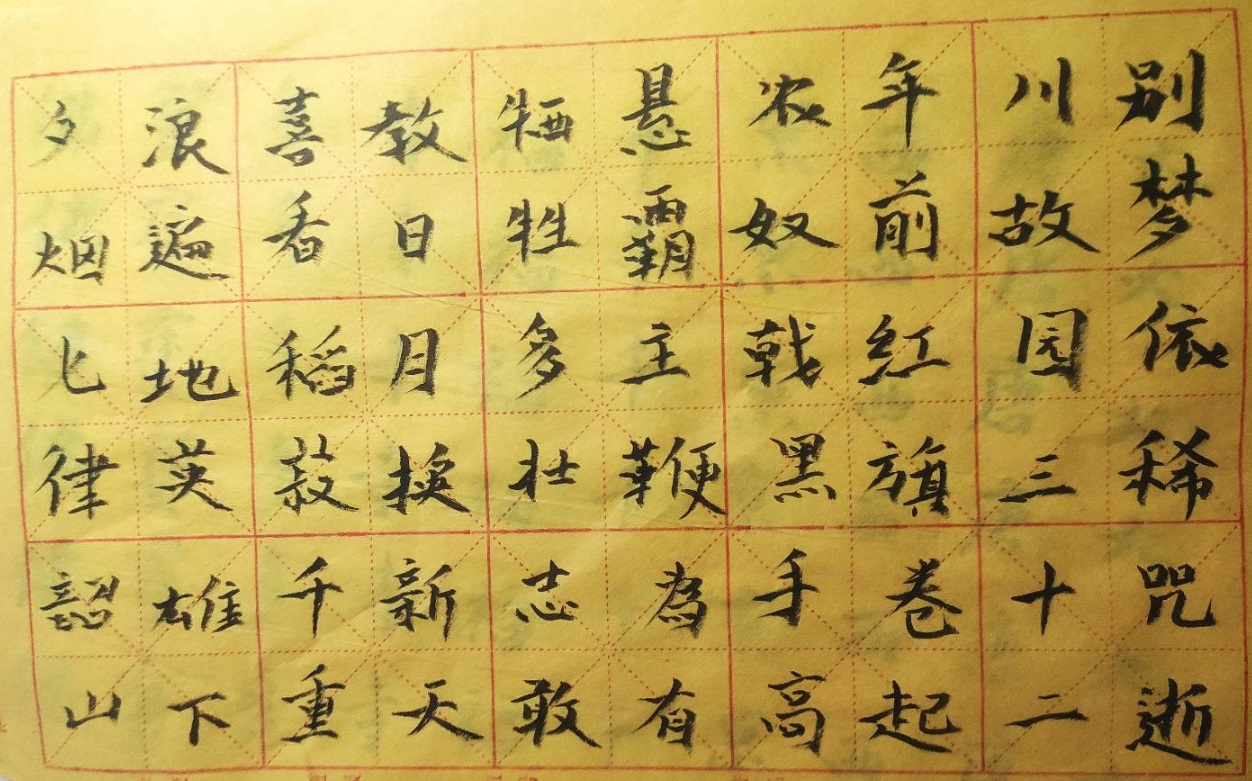 别梦依稀咒逝
川故园三十二
年前紅旗卷起
农奴戟黑手高
悬霸主鞭為有
牺牲多壮志敢
教日月换新天
喜看稻菽千重
浪遍地英雄下
夕烟七律韶山